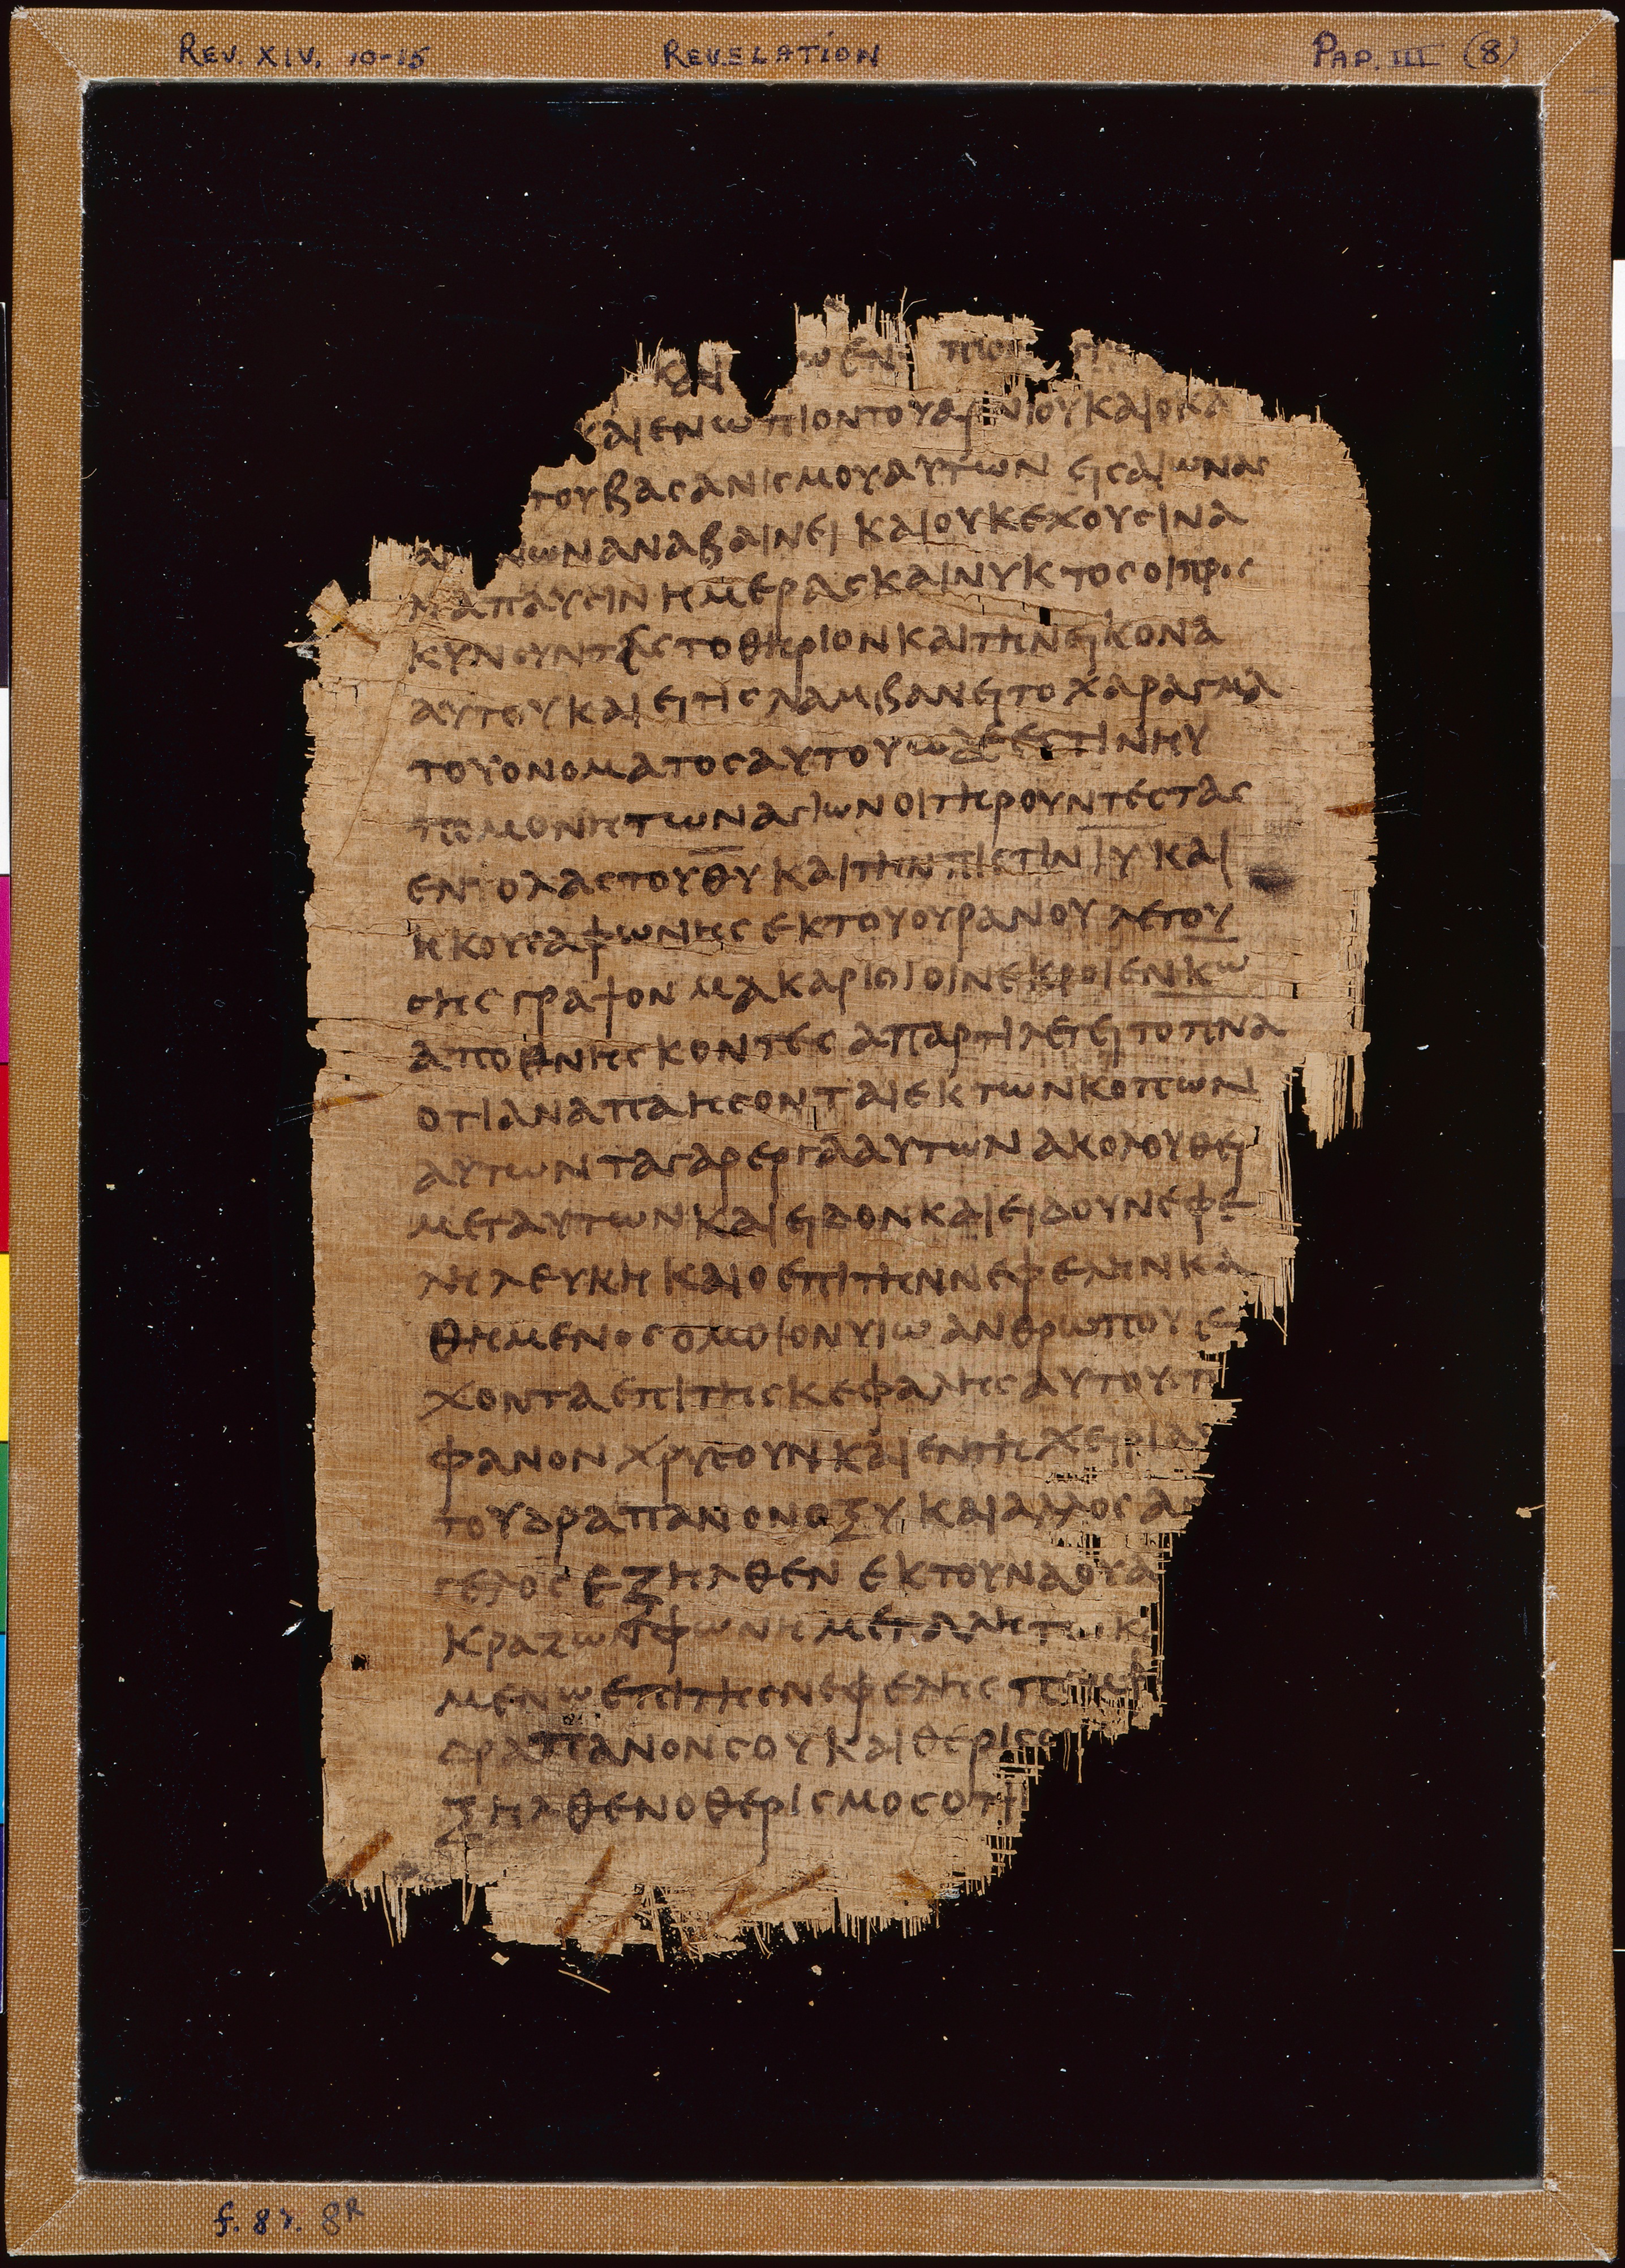 REV. XIV, 10-15 REVELATION PAP. III (8)
και ενωπιον
και ενωπιον του αρνιου και ο κα
του βασανισμου αυτων εις αιωνας
νων αναβαινει και ουκ εχουσιν α
ναπαυσιν ημερας και νυκτος οι προς
κυνουντες το θηριον και την εικονα
αυτου και ει τις λαμβανει το χαραγμα
του ονοματος αυτου ωδε εστιν η υ
πομονη των αγιων οι τηρουντες τας
εντολας του θυ και την πιστιν ιυ και
ηκουσα φωνης εκ του ουρανου λεγου
σης γραψον μακαριοι οι νεκροι εν κω
αποθνησκοντες απ αρτι λεγει το πνα
οτι αναπαησονται εκ των κοπων
αυτων τα γαρ εργα αυτων ακολουθει
μετ αυτων και ειδον και ειδου νεφε
λη λευκη και ο επι την νεφελην κα
θημενος ομοιον υιω ανθρωπου ε
χοντα επι της κεφαλης αυτου στ
φανον χρυσουν και εν τη χειρι α
του δραπανον οξυ και αλλος αγ
γελος εξηλθεν εκ του ναου α
κραζων φωνη μεγαλη τω κ
μενω επι της νεφελης πεμψ
δραπανον σου και θερισο
ξηλθεν ο θερισμος οτι
f. 8 r. 8R